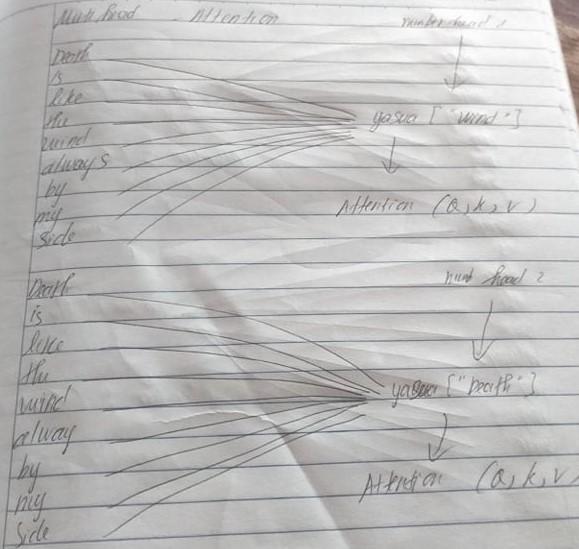 Multi head Attention
number head 1
Death
is
like
the
wind
always
by
my
side
yasua ["wind"]
Attention (Q, k, v)
Death
is
like
the
wind
alway
by
my
side
num head 2
yasua ["Death"]
Attention (Q, k, v